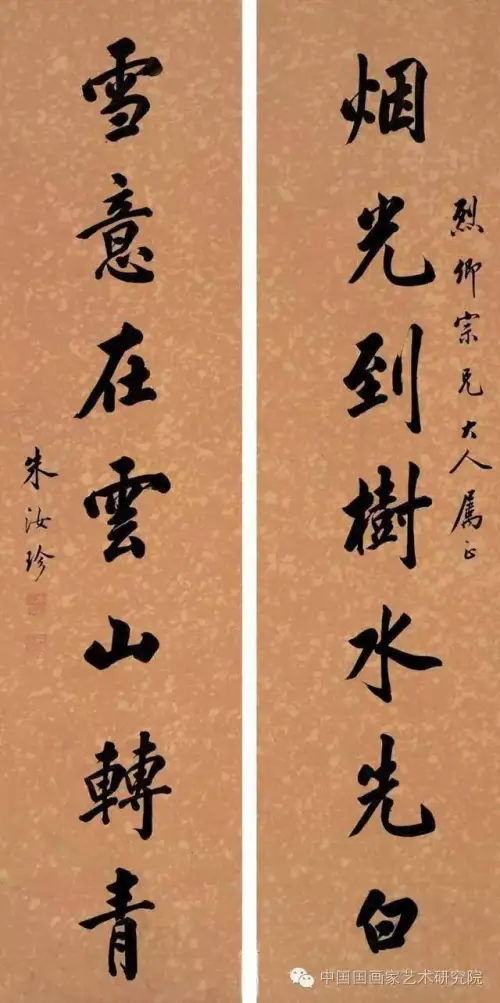 烈卿宗兄大人属正
烟光到樹水先白
雪意在雲山轉青
朱汝珍
中国国画家艺术研究院